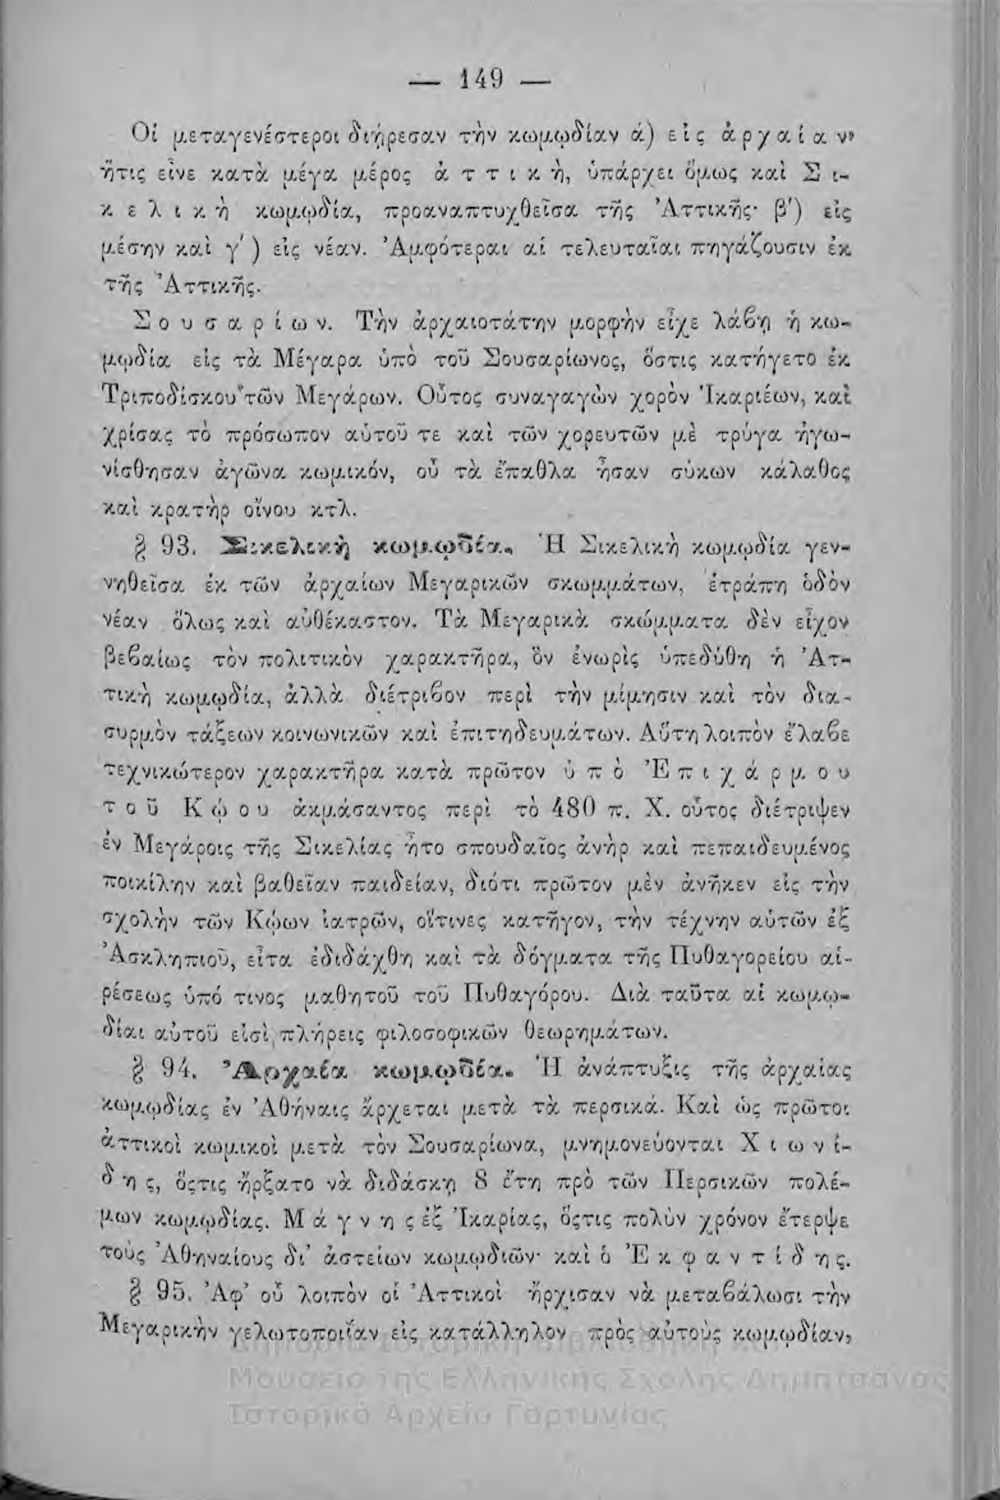 — 149 —
Οἱ μεταγενέστεροι διῄρεσαν τὴν κωμῳδίαν ά) εἰς ἀ ρ χ α ί α ν,
ἥτις εἶνε κατὰ μέγα μέρος ἀ τ τ ι κ ή, ὑπάρχει ὅμως καὶ Σ ι-
κ ε λ ι κ ὴ κωμῳδία, προαναπτυχθεῖσα τῆς Ἀττικῆς· β΄) εἰς
μέσην καὶ γ΄) εἰς νέαν. Ἀμφότεραι αἱ τελευταῖαι πηγάζουσιν ἐκ
τῆς Ἀττικῆς.
Σ ο υ σ α ρ ί ω ν. Τὴν ἀρχαιοτάτην μορφὴν εἶχε λάβῃ ἡ κω-
μῳδία εἰς τὰ Μέγαρα ὑπὸ τοῦ Σουσαρίωνος, ὅστις κατήγετο ἐκ
Τριποδίσκου τῶν Μεγάρων. Οὗτος συναγαγὼν χορὸν Ἰκαριέων, καὶ
χρίσας τὸ πρόσωπον αὑτοῦ τε καὶ τῶν χορευτῶν μὲ τρύγα ἠγω-
νίσθησαν ἀγῶνα κωμικόν, οὗ τὰ ἔπαθλα ἦσαν σύκων κάλαθος
καὶ κρατὴρ οἴνου κτλ.
§ 93. Σικελικὴ κωμῳδία. Ἡ Σικελικὴ κωμῳδία γεν-
νηθεῖσα ἐκ τῶν ἀρχαίων Μεγαρικῶν σκωμμάτων, ἐτράπη ὁδὸν
νέαν ὅλως καὶ αὐθέκαστον. Τὰ Μεγαρικὰ σκώμματα δὲν εἶχον
βεβαίως τὸν πολιτικὸν χαρακτῆρα, ὃν ἐνωρὶς ὑπεδύθη ἡ Ἀτ-
τικὴ κωμῳδία, ἀλλὰ διέτριβον περὶ τὴν μίμησιν καὶ τὸν δια-
συρμὸν τάξεων κοινωνικῶν καὶ ἐπιτηδευμάτων. Αὕτη λοιπὸν ἔλαβε
τεχνικώτερον χαρακτῆρα κατὰ πρῶτον ὑ π ὸ Ἐ π ι χ ά ρ μ ο υ
τ ο ῦ Κ ῴ ο υ ἀκμάσαντος περὶ τὸ 480 π. Χ. οὗτος διέτριψεν
ἐν Μεγάροις τῆς Σικελίας ἦτο σπουδαῖος ἀνὴρ καὶ πεπαιδευμένος
ποικίλην καὶ βαθεῖαν παιδείαν, διότι πρῶτον μὲν ἀνῆκεν εἰς τὴν
σχολὴν τῶν Κῴων ἰατρῶν, οἵτινες κατῆγον, τὴν τέχνην αὑτῶν ἐξ
Ἀσκληπιοῦ, εἶτα ἐδιδάχθη καὶ τὰ δόγματα τῆς Πυθαγορείου αἱ-
ρέσεως ὑπό τινος μαθητοῦ τοῦ Πυθαγόρου. Διὰ ταῦτα αἱ κωμῳ-
δίαι αὐτοῦ εἰσὶ πλήρεις φιλοσοφικῶν θεωρημάτων.
§ 94. Ἀρχαία κωμῳδία. Ἡ ἀνάπτυξις τῆς ἀρχαίας
κωμῳδίας ἐν Ἀθήναις ἄρχεται μετὰ τὰ περσικά. Καὶ ὡς πρῶτοι
ἀττικοὶ κωμικοὶ μετὰ τὸν Σουσαρίωνα, μνημονεύονται Χ ι ω ν ί-
δ η ς, ὅςτις ἤρξατο νὰ διδάσκῃ 8 ἔτη πρὸ τῶν Περσικῶν πολέ-
μων κωμῳδίας. Μ ά γ ν η ς ἐξ Ἰκαρίας, ὅςτις πολὺν χρόνον ἔτερψε
τοὺς Ἀθηναίους δι' ἀστείων κωμῳδιῶν· καὶ ὁ Ἐ κ φ α ν τ ί δ η ς.
§ 95. Ἀφ' οὗ λοιπὸν οἱ Ἀττικοὶ ἤρχισαν νὰ μεταβάλωσι τὴν
Μεγαρικὴν γελωτοποιΐαν εἰς κατάλληλον πρὸς αὐτοὺς κωμῳδίαν,
Δημόσια Ιστορική Βιβλιοθήκη και
Μουσείο της Ελληνικής Σχολής Δημητσάνας
Ιστορικό Αρχείο Γορτυνίας